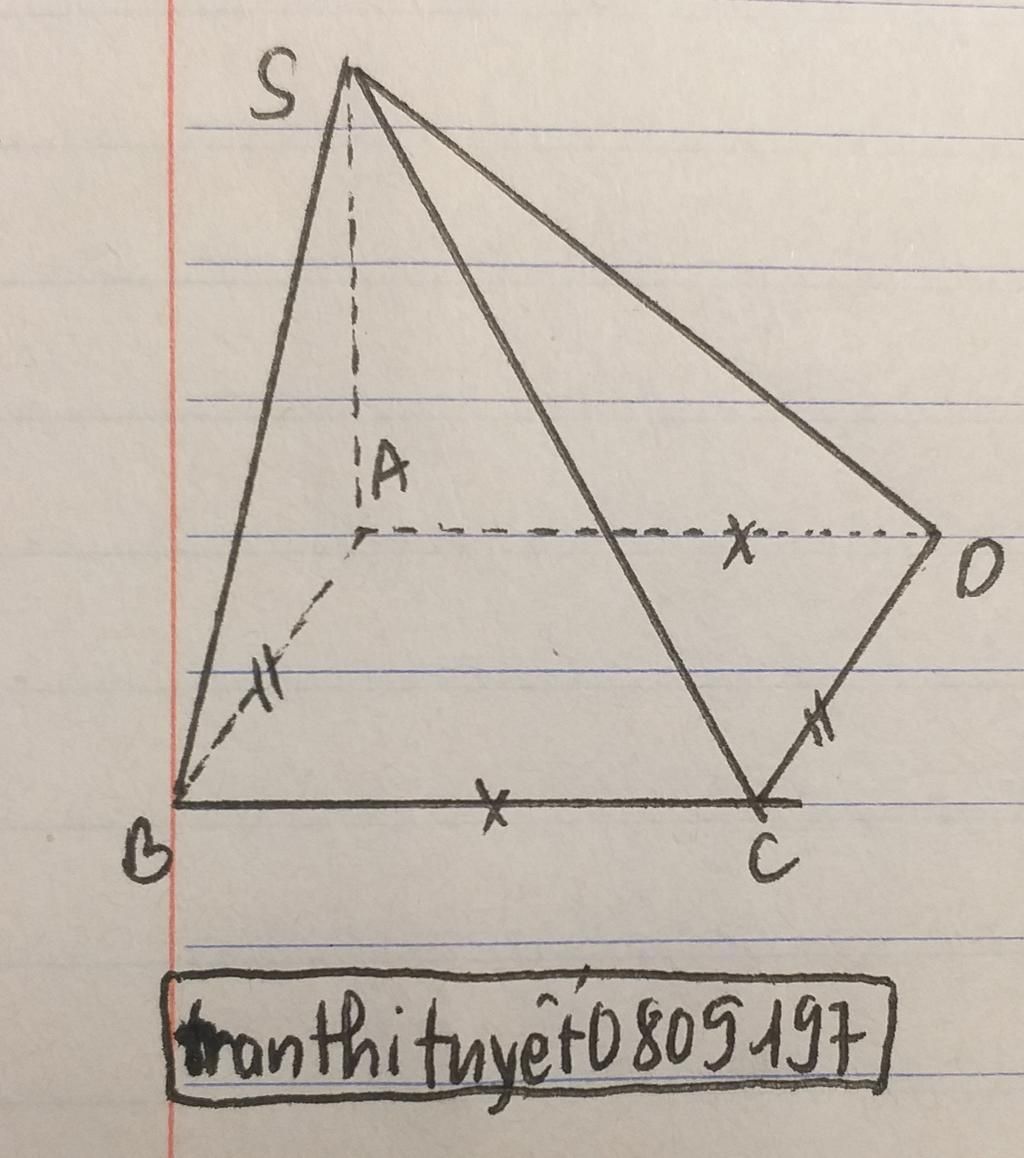 S
A
D
B
C
tranthituyết0809197